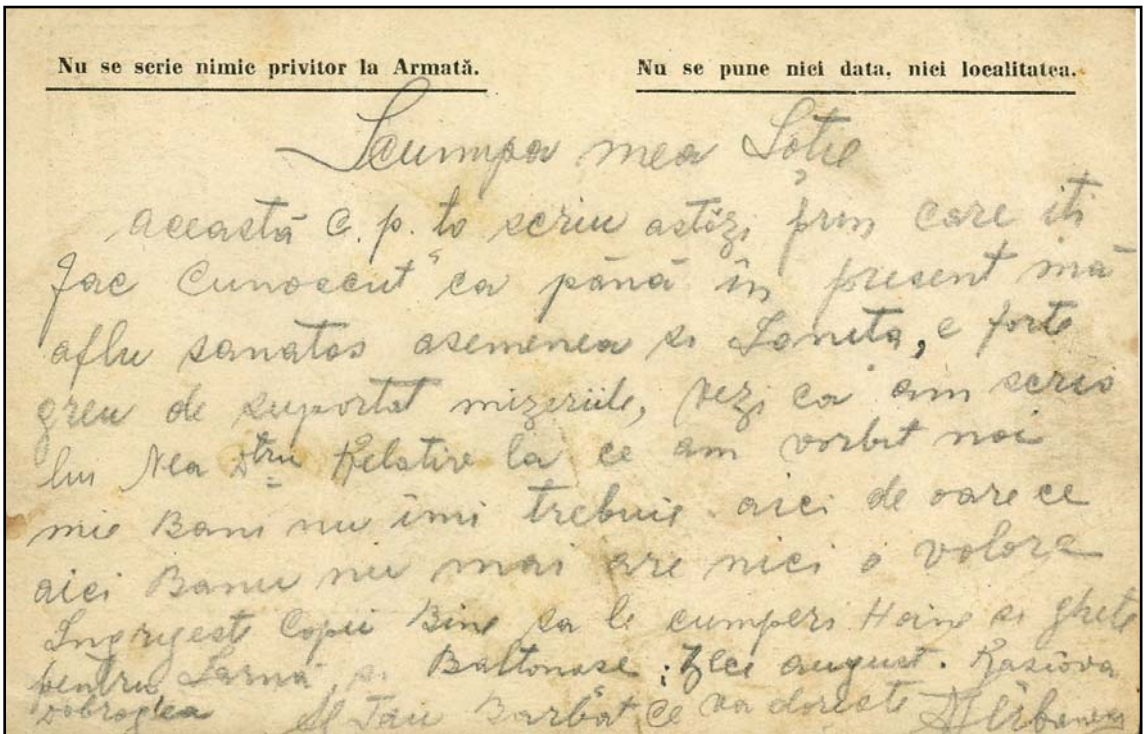 Nu se scrie nimic privitor la Armată. Nu se pune nici data, nici localitatea.
Scumpa mea Soție
această C. p. to scriu astăzi prin care iti
fac Cunoscut ca până în present mă
aflu sanatos asemenea si Ionita, e forte
greu de suportat mizeriile, vezi ca am scris
lui Nea Dtru Relative la ce am vorbit noi
mie Bani nu îmi trebuie aici de oare ce
aici Banu nu mai are nici o volore
Ingrijeste Copii Bine sa le cumperi Haine si ghete
pentru Iarnă si Baltonase. Zece august. Rasova
Dobrogea Al Tau Barbat ce va doreste